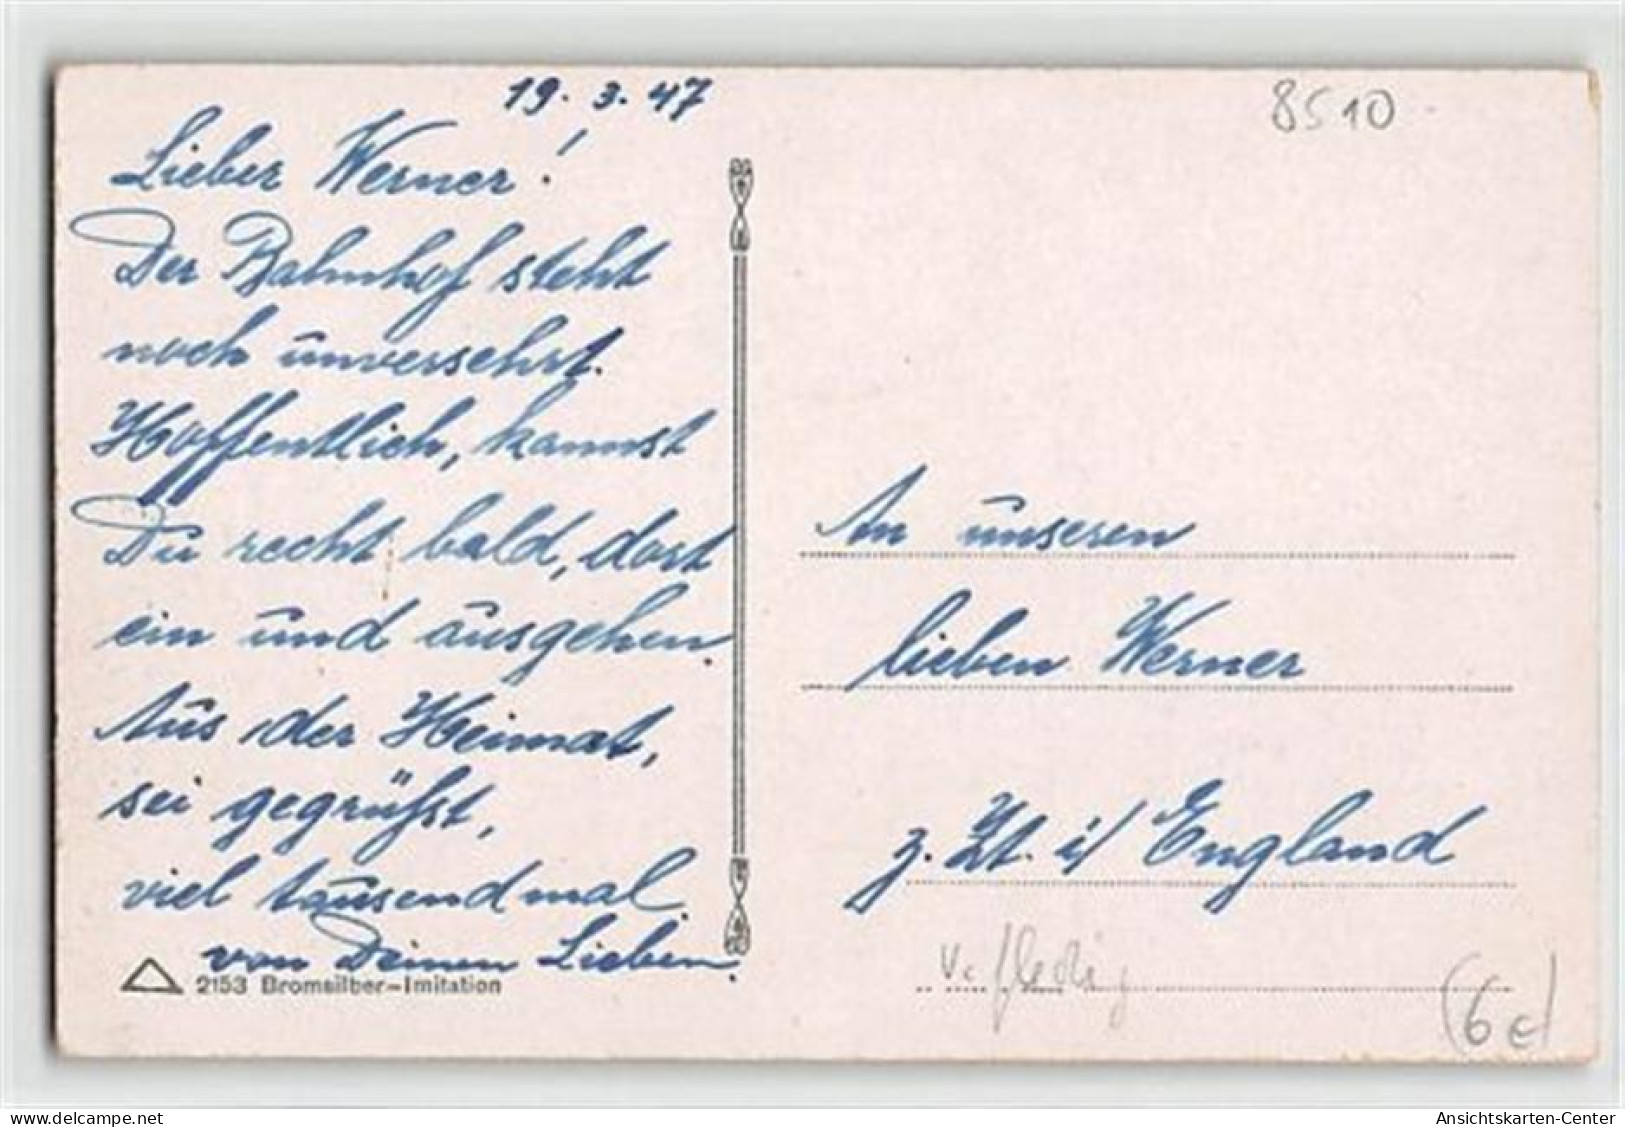 19. 3. 47
8510
Lieber Werner!
Der Bahnhof steht
noch unversehrt.
Hoffentlich, kannst
Du recht bald, dort
ein und ausgehen.
Aus der Heimat,
sei gegrüßt,
viel tausendmal
von Deinen Lieben.
2153 Bromsilber-Imitation
An unseren
lieben Werner
z. Zt. i/ England
(6e)
www.delcampe.net
Ansichtskarten-Center